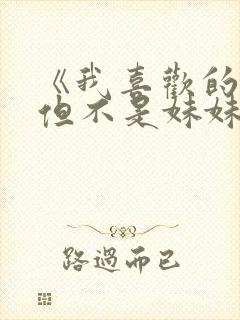 《我喜歡的
但不是妹妹
路過而已